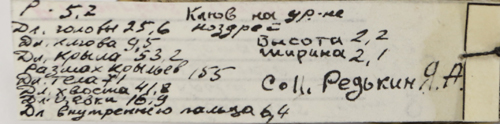 Р - 5,2
Дл. головы 25,6
Дл. клюва 9,5
Дл. крыла 53,2
Размах крыльев 155
Дл. тела 71
Дл. хвоста 41,8
Дл. цевки 16,9
Дл внутреннего пальца 6,4
Клюв на ур-не
ноздрей
Высота 2,2
ширина 2,1
Coll. Редькин Я.А.